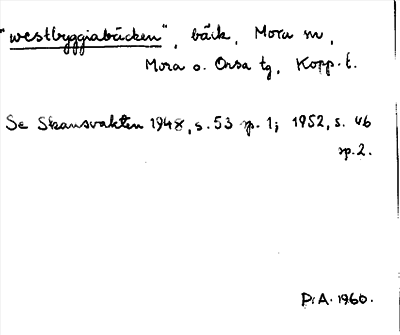 "westbyggiabäcken", bäck, Mora sn,
Mora o. Orsa tg, Kopp. l.
Se Skansvakten 1948, s. 53 sp. 1; 1952, s. 46
sp. 2.
P. A. 1960.